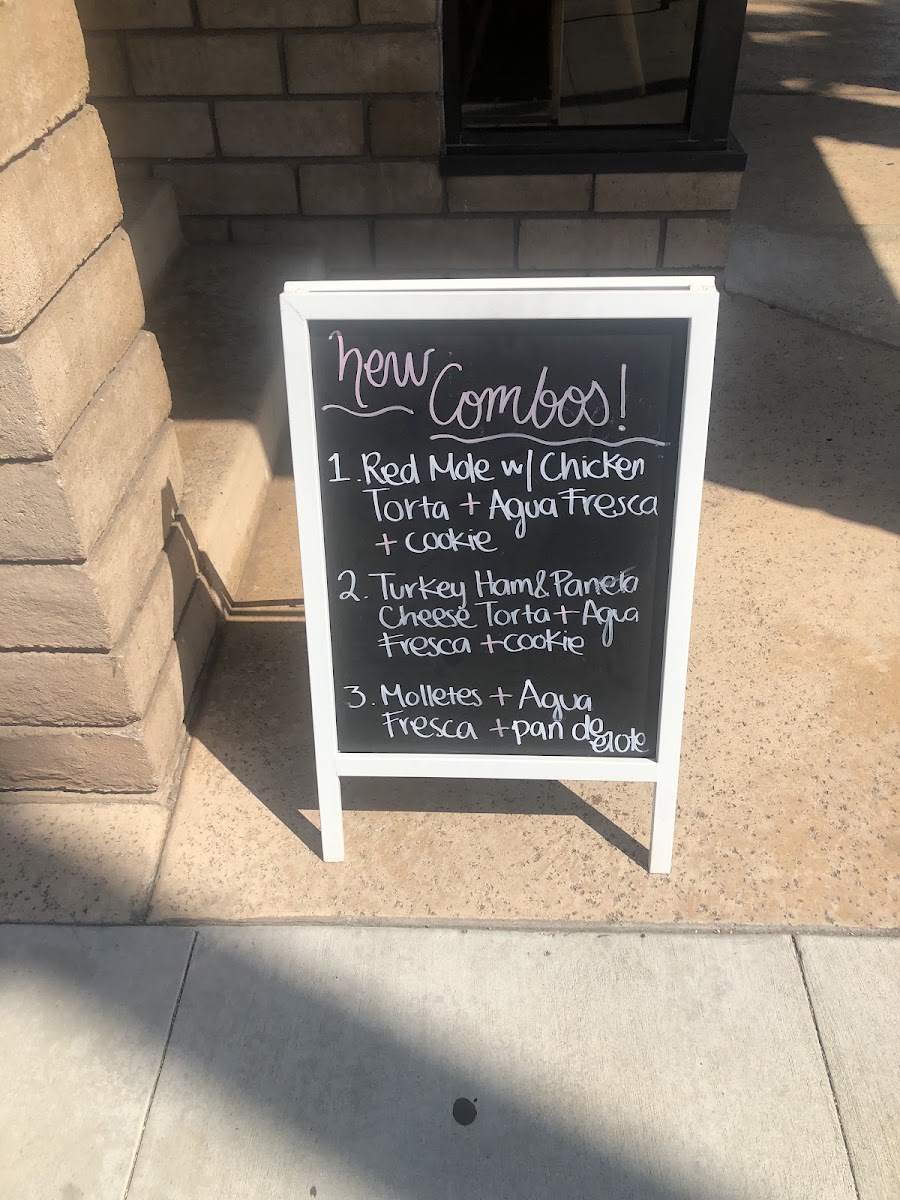 new Combos!
1. Red Mole w/ Chicken
Torta + Agua Fresca
+ cookie
2. Turkey Ham & Panela
Cheese Torta + Agua
Fresca + cookie
3. Molletes + Agua
Fresca + pan de
elote